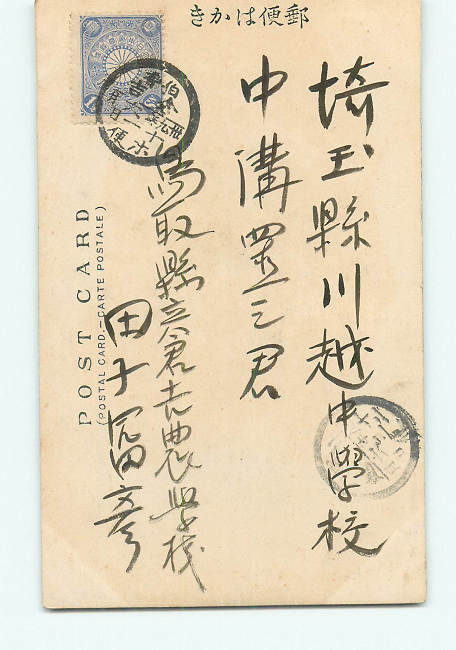 郵便はかき
埼玉縣川越中學校
中溝 三君
鳥取縣立倉吉農學校
田子冨彦
POST CARD
(POSTAL CARD.—CARTE POSTALE)